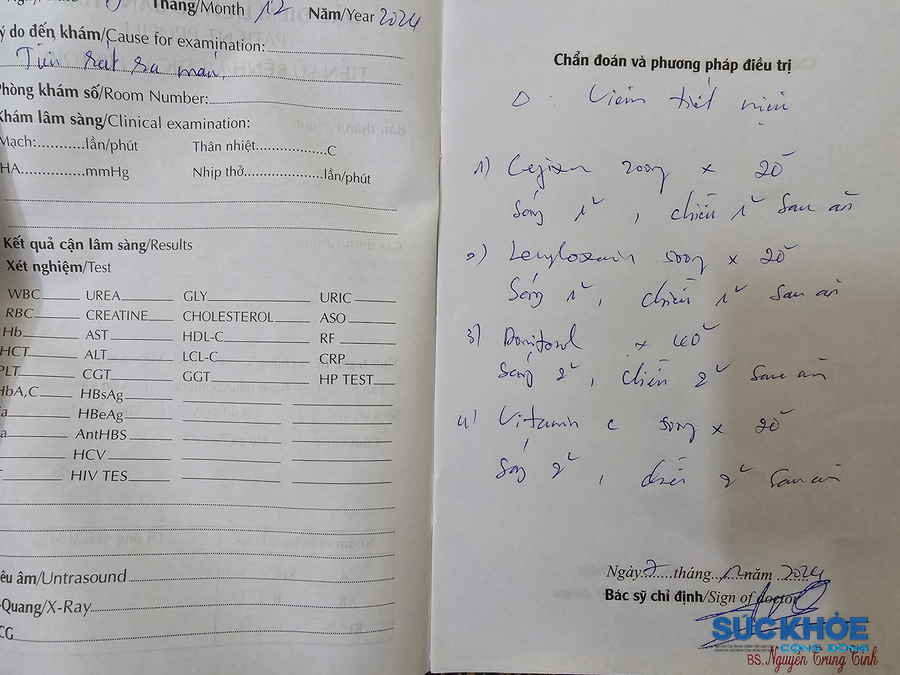 Tháng/Month 12 Năm/Year 2024
ý do đến khám/Cause for examination:
Tiểu rát ra máu.
Phòng khám số/Room Number:
Khám lâm sàng/Clinical examination:
Mạch:...........lần/phút Thân nhiệt..................C
HA...............mmHg Nhịp thở....................lần/phút
Kết quả cận lâm sàng/Results
Xét nghiệm/Test
WBC UREA GLY URIC
RBC CREATINE CHOLESTEROL ASO
Hb AST HDL-C RF
HCT ALT LCL-C CRP
PLT CGT GGT HP TEST
HbA,C HBsAg
a HBeAg
a AntHBS
HCV
HIV TES
êu âm/Untrasound
-Quang/X-Ray
CG
Chẩn đoán và phương pháp điều trị
D: Viêm tiết niệu
1) 200mg x 20
Sáng 1v, chiều 1v sau ăn
2) 500mg x 20
Sáng 1v, chiều 1v sau ăn
3) x 40
Sáng 2v, chiều 2v sau ăn
4) Vitamin c 500mg x 20
Sáng 2v, chiều 2v sau ăn
Ngày 7 tháng 12 năm 2024
Bác sỹ chỉ định/Sign of doctor
SỨC KHỎE
CỘNG ĐỒNG
BS. Nguyễn Trung Tính